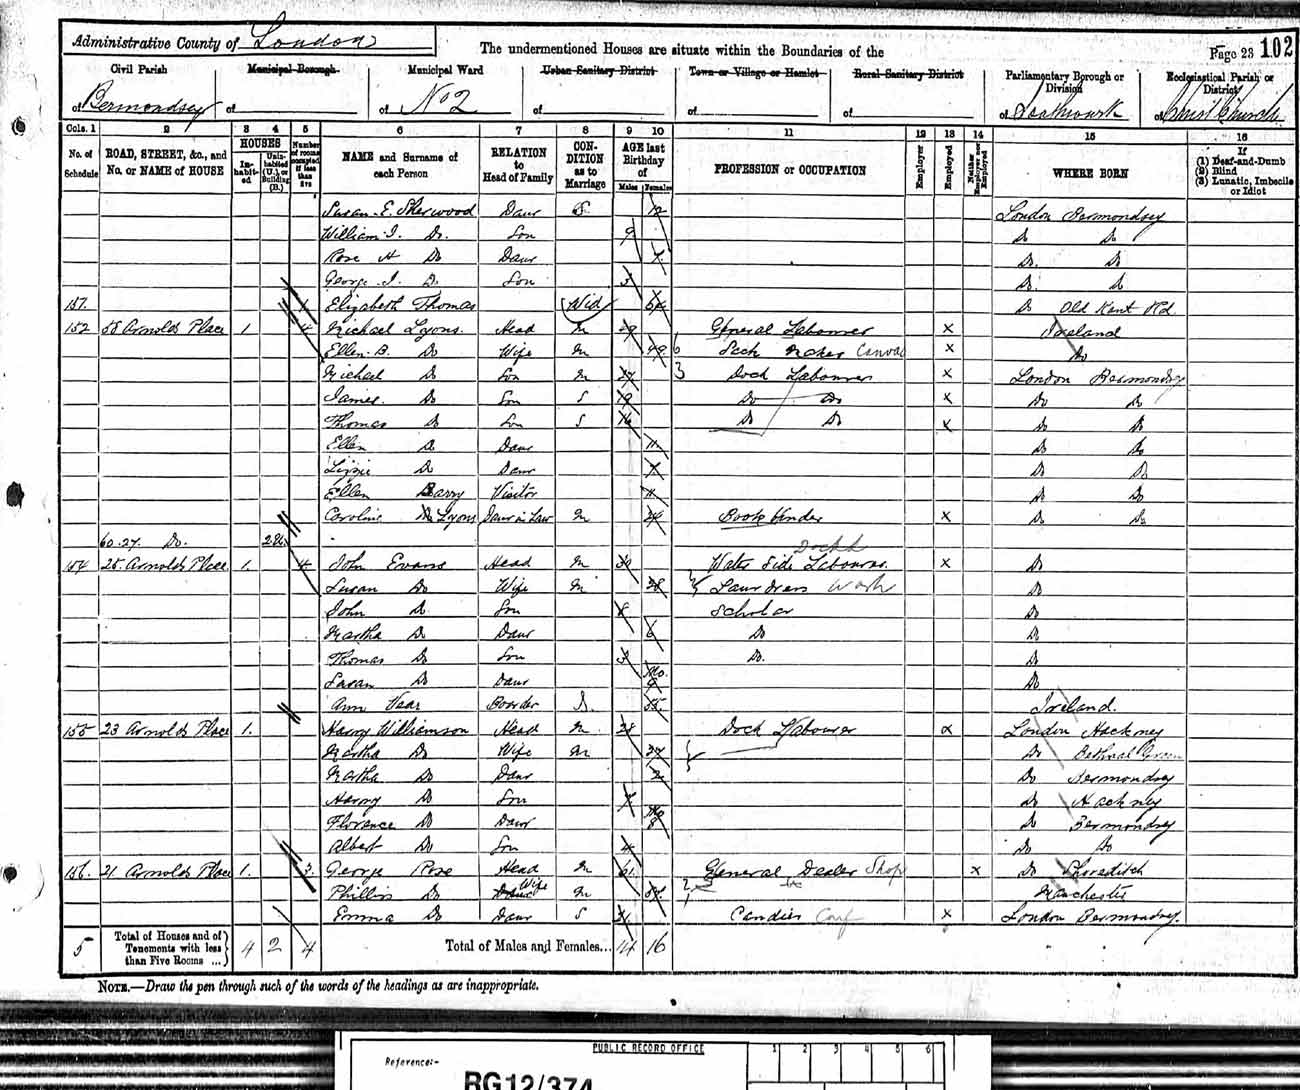 Administrative County of London
The undermentioned Houses are situate within the Boundaries of the
Page 23 102
Civil Parish of Bermondsey
Municipal Borough of
Municipal Ward of No 2
Urban Sanitary District of
Town or Village or Hamlet of
Rural Sanitary District of
Parliamentary Borough or Division of Southwark
Ecclesiastical Parish or District of Christ Church
Cols. 1 2 3 4 5 6 7 8 9 10 11 12 13 14 15 16
No. of Schedule
ROAD, STREET, &c., and No. or NAME of HOUSE
HOUSES
Inhabited
Uninhabited (U.), or Building (B.)
Number of rooms occupied if less than five
NAME and Surname of each Person
RELATION to Head of Family
CONDITION as to Marriage
AGE last Birthday of
Males Females
PROFESSION or OCCUPATION
Employer
Employed
Neither Employer nor Employed
WHERE BORN
If (1) Deaf-and-Dumb (2) Blind (3) Lunatic, Imbecile or Idiot
Susan E. Sherwood Daur S 12 London Bermondsey
William J. Do. Son 9 Do Do
Rose H Do Daur Do Do
George J. Do Son 3 Do Do
151. Elizabeth Thomas Wid 64 Do Old Kent Rd.
152 58 Arnolds Place 1 4 Michael Lyons. Head M 49 General Labourer x Ireland
Ellen B. Do Wife M 49 6 Sack Maker Canvas x Do
Michael Do Son M 24 3 Dock Labourer x London Bermondsey
James Do Son S 19 Do Do x Do Do
Thomas Do Son S 16 Do Do x Do Do
Ellen Do Daur 11 Do Do
Lizzie Do Daur Do Do
Ellen Barry Visitor 11 Do Do
Caroline Lyons Daur in Law M 24 Book binder x Do Do
60.27. Do. 2
154 25 Arnolds Place 1. 4 John Evans Head M 30 Water Side Labourer Dock L x Do
Susan Do Wife M 28 Laundress Wash Do
John Do Son 8 Scholar Do
Martha Do Daur 6 Do Do
Thomas Do Son 3 Do. Do
Susan Do Daur Mo. 9 Do
Ann Boarder S. 55 Ireland.
155 23 Arnolds Place 1. Harry Williamson Head M 28 Dock Labourer x London Hackney
Martha Do Wife M 27 Do Bethnal Green
Martha Do Daur 2 Do Bermondsey
Harry Do Son Do Hackney
Florence Do Daur Mo 8 Do Bermondsey
Albert Do Son 4 Do Do
156. 21 Arnolds Place 1. 3. George Rose Head M 61. General Dealer Shop x Do Shoreditch
Phillis Do Wife M 54. Manchester
Emma Do Daur S 21 Candies Conf x London Bermondsey.
5 Total of Houses and of Tenements with less than Five Rooms ... 4 2 4 Total of Males and Females... 14 16
NOTE.—Draw the pen through such of the words of the headings as are inappropriate.
PUBLIC RECORD OFFICE 1 2 3 4 5 6
Reference:-
RG12/374